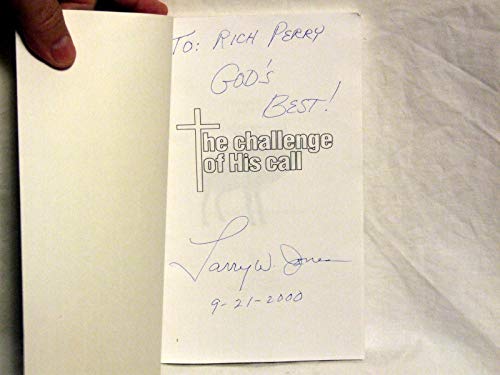 TO: RICH PERRY
GOD'S
BEST!
The challenge
of His call
Larry W. Jones
9-21-2000